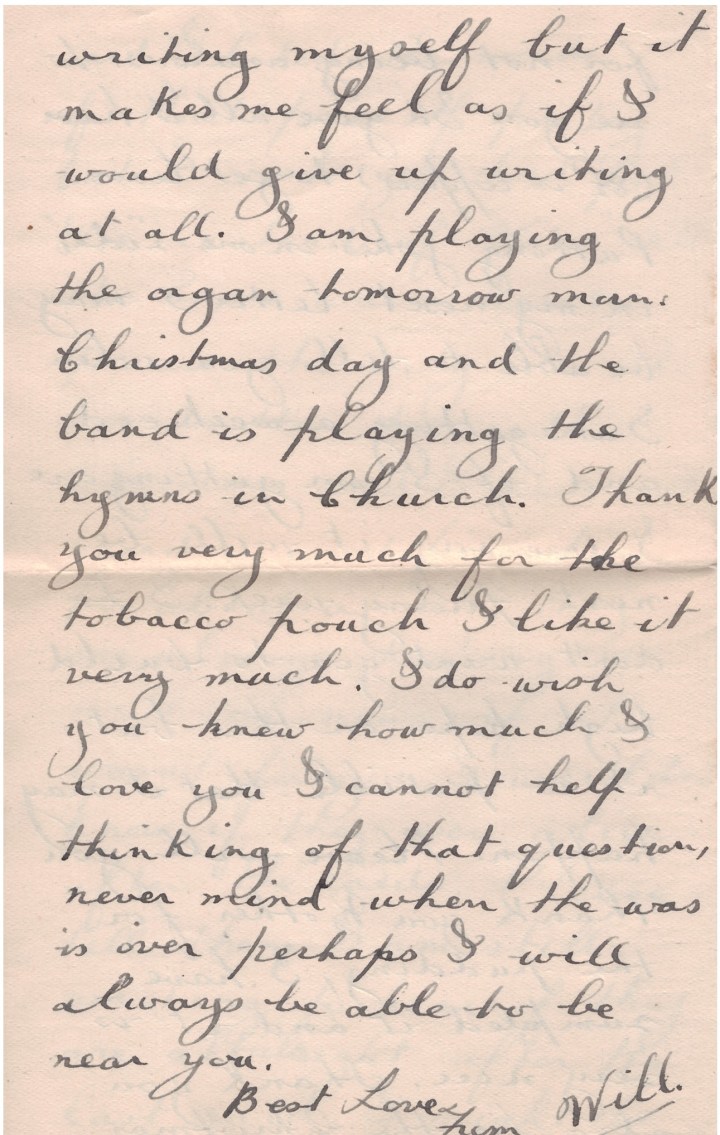 writing myself but it
makes me feel as if I
would give up writing
at all. I am playing
the organ tomorrow morn:
Christmas day and the
band is playing the
hymns in Church. Thank
you very much for the
tobacco pouch I like it
very much. I do wish
you knew how much I
love you I cannot help
thinking of that question,
never mind when the was
is over perhaps I will
always be able to be
near you.
Best Love
from Will.